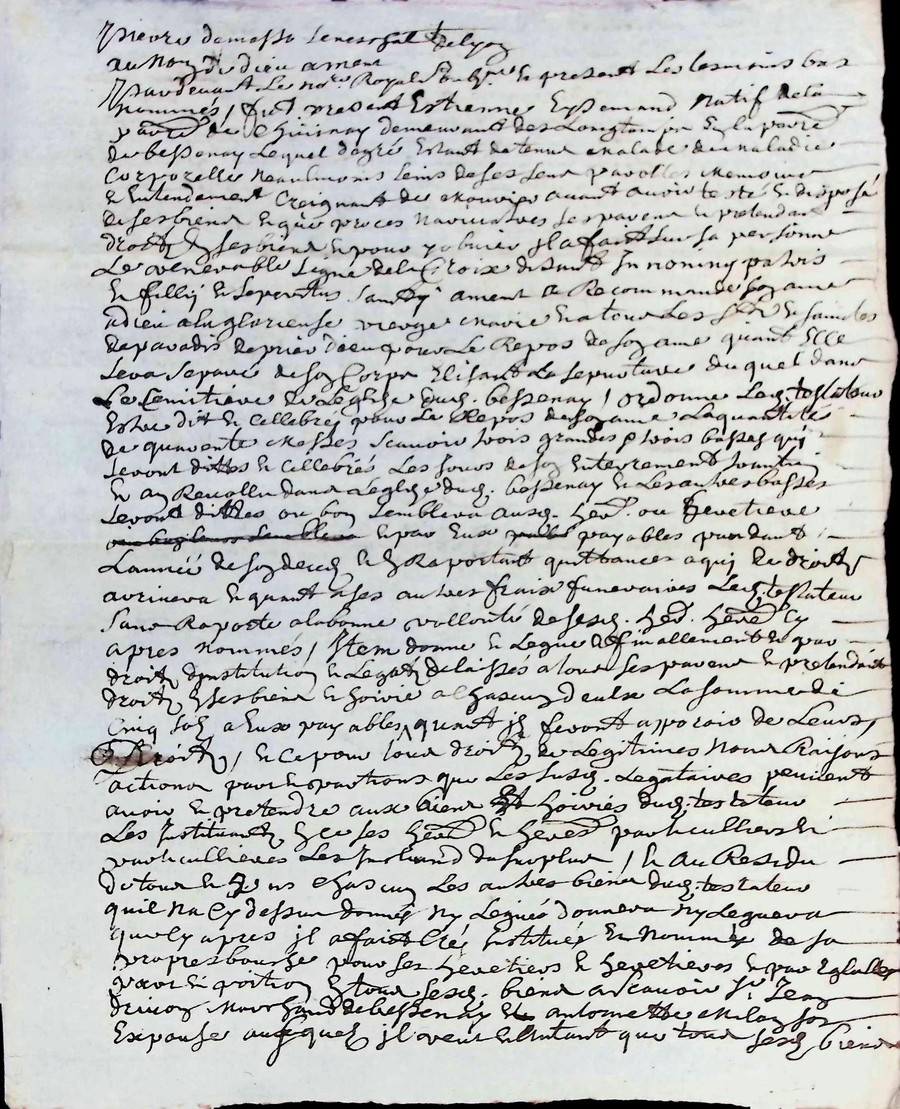 au Nom de dieu amen
pardevant Le no.re Royal et present Les tesmoins bas
nommés / fut present Estienne Eyssemand Natif de la
parr.e de demeurant des Longtemps En la parr.e
de bessenay Lequel dagré Estant detenu malade de maladie
Corporelle neaulmoins sains de ses sens parolles memoire
et Entendement Creignant de mourir avant avoir testé et disposé
de ses biens et que proces narrive entre ses parens et pretendant
droits En ses biens et pour y obvier jl a fait sur sa personne
Le venerable signe de la Croix disant In nominy patris
et fillij et sepiritus santy ament a Recommandé son ame
a dieu a la glorieuse vierge marie et a tous Les st et saintes
de paradis de prier dieu pour Le Repos de son ame quant Elle
sera separé de son Corps Elisant La sepulture duquel dans
Le Cemitiere de Leglise dud. bessenay / ordonne Led. testateur
Estre dit et Cellebrés pour Le Repos de son ame La quantité
de quarente messes scavoir trois grandes et trois basses quj
seront dittes et Cellebrés Les jours de son Enterrement
et an Revollu dans Leglise dud. bessenay et Les autres basses
seront dittes ou bon semblera ausd. her. ou heretiere
et par Eux payables pendant
Lannée de son deces et En Raportant quittances a quj de droit
arrivera et quant a ses autres fraix funeraires Led. testateur
sans Raporte a la bonne vollonté de sesd. her. here. Cy
apres nommés / Item donne et Legue et finallement et par
droit dinstitution et Legat delaissés a tous ses parens et pretendants
droits En ses biens et hoirie a Chascun deulx La somme de
Cinq sols a Eux payables quant jls feront apparoir de Leurs
droits / et Ce pour tous droits de Legitimes noms Raisons
actions part et portions que Les susd. Legataires peuvent
avoir et pretendre aux biens et hoiries dud. testateur
Les Instituant En Ce ses her. et here. particulliers et
particullieres Les Excluand du surplus / et au Residu
de tous et Chascun Les autres biens dud. testateur
quil na Cy dessus donné ny Legués donnera ny Leguera
que Cy apres jl a fait Creé Institués et Nommés de sa
propre bouche pour ses heretiers et heretieres et par Egalles
part et portion En tous sesd. biens a scavoir sr Jean
marchand de bessenay et antoinette
Expouse ausquels jl veut et Entant que tous sesd. biens